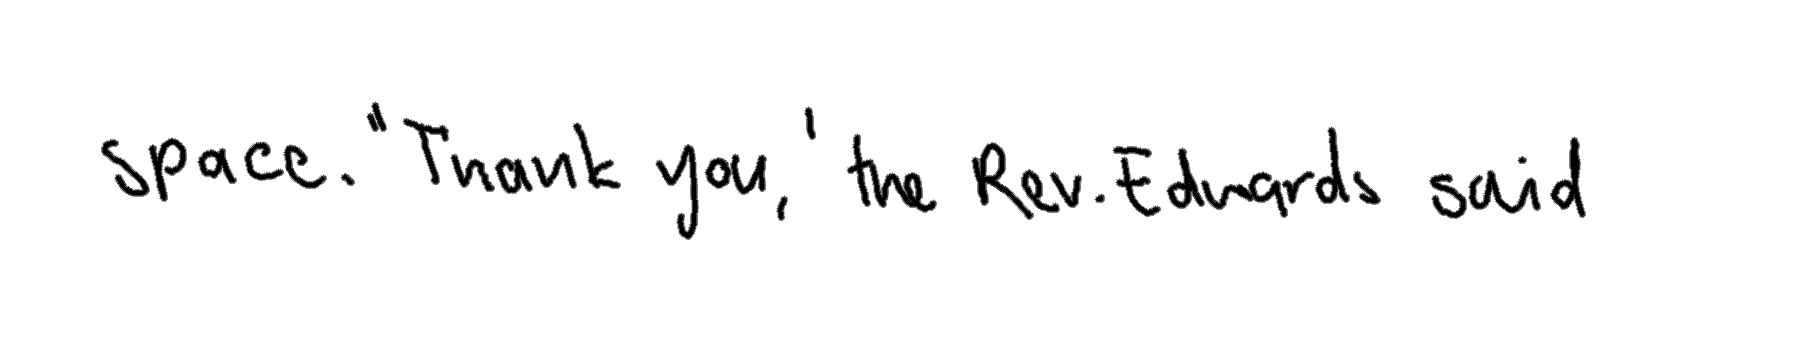 space. "Thank you,' the Rev. Edwards said